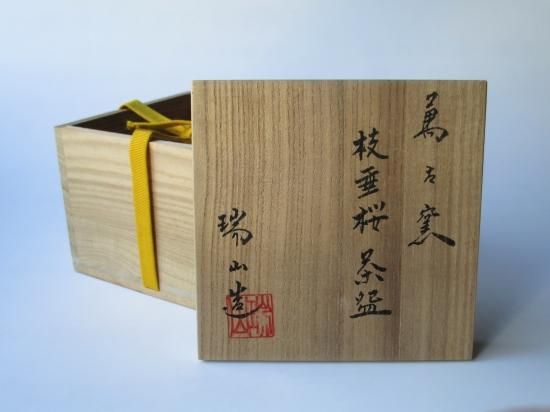 萬古窯
枝垂桜 茶盌
瑞山造